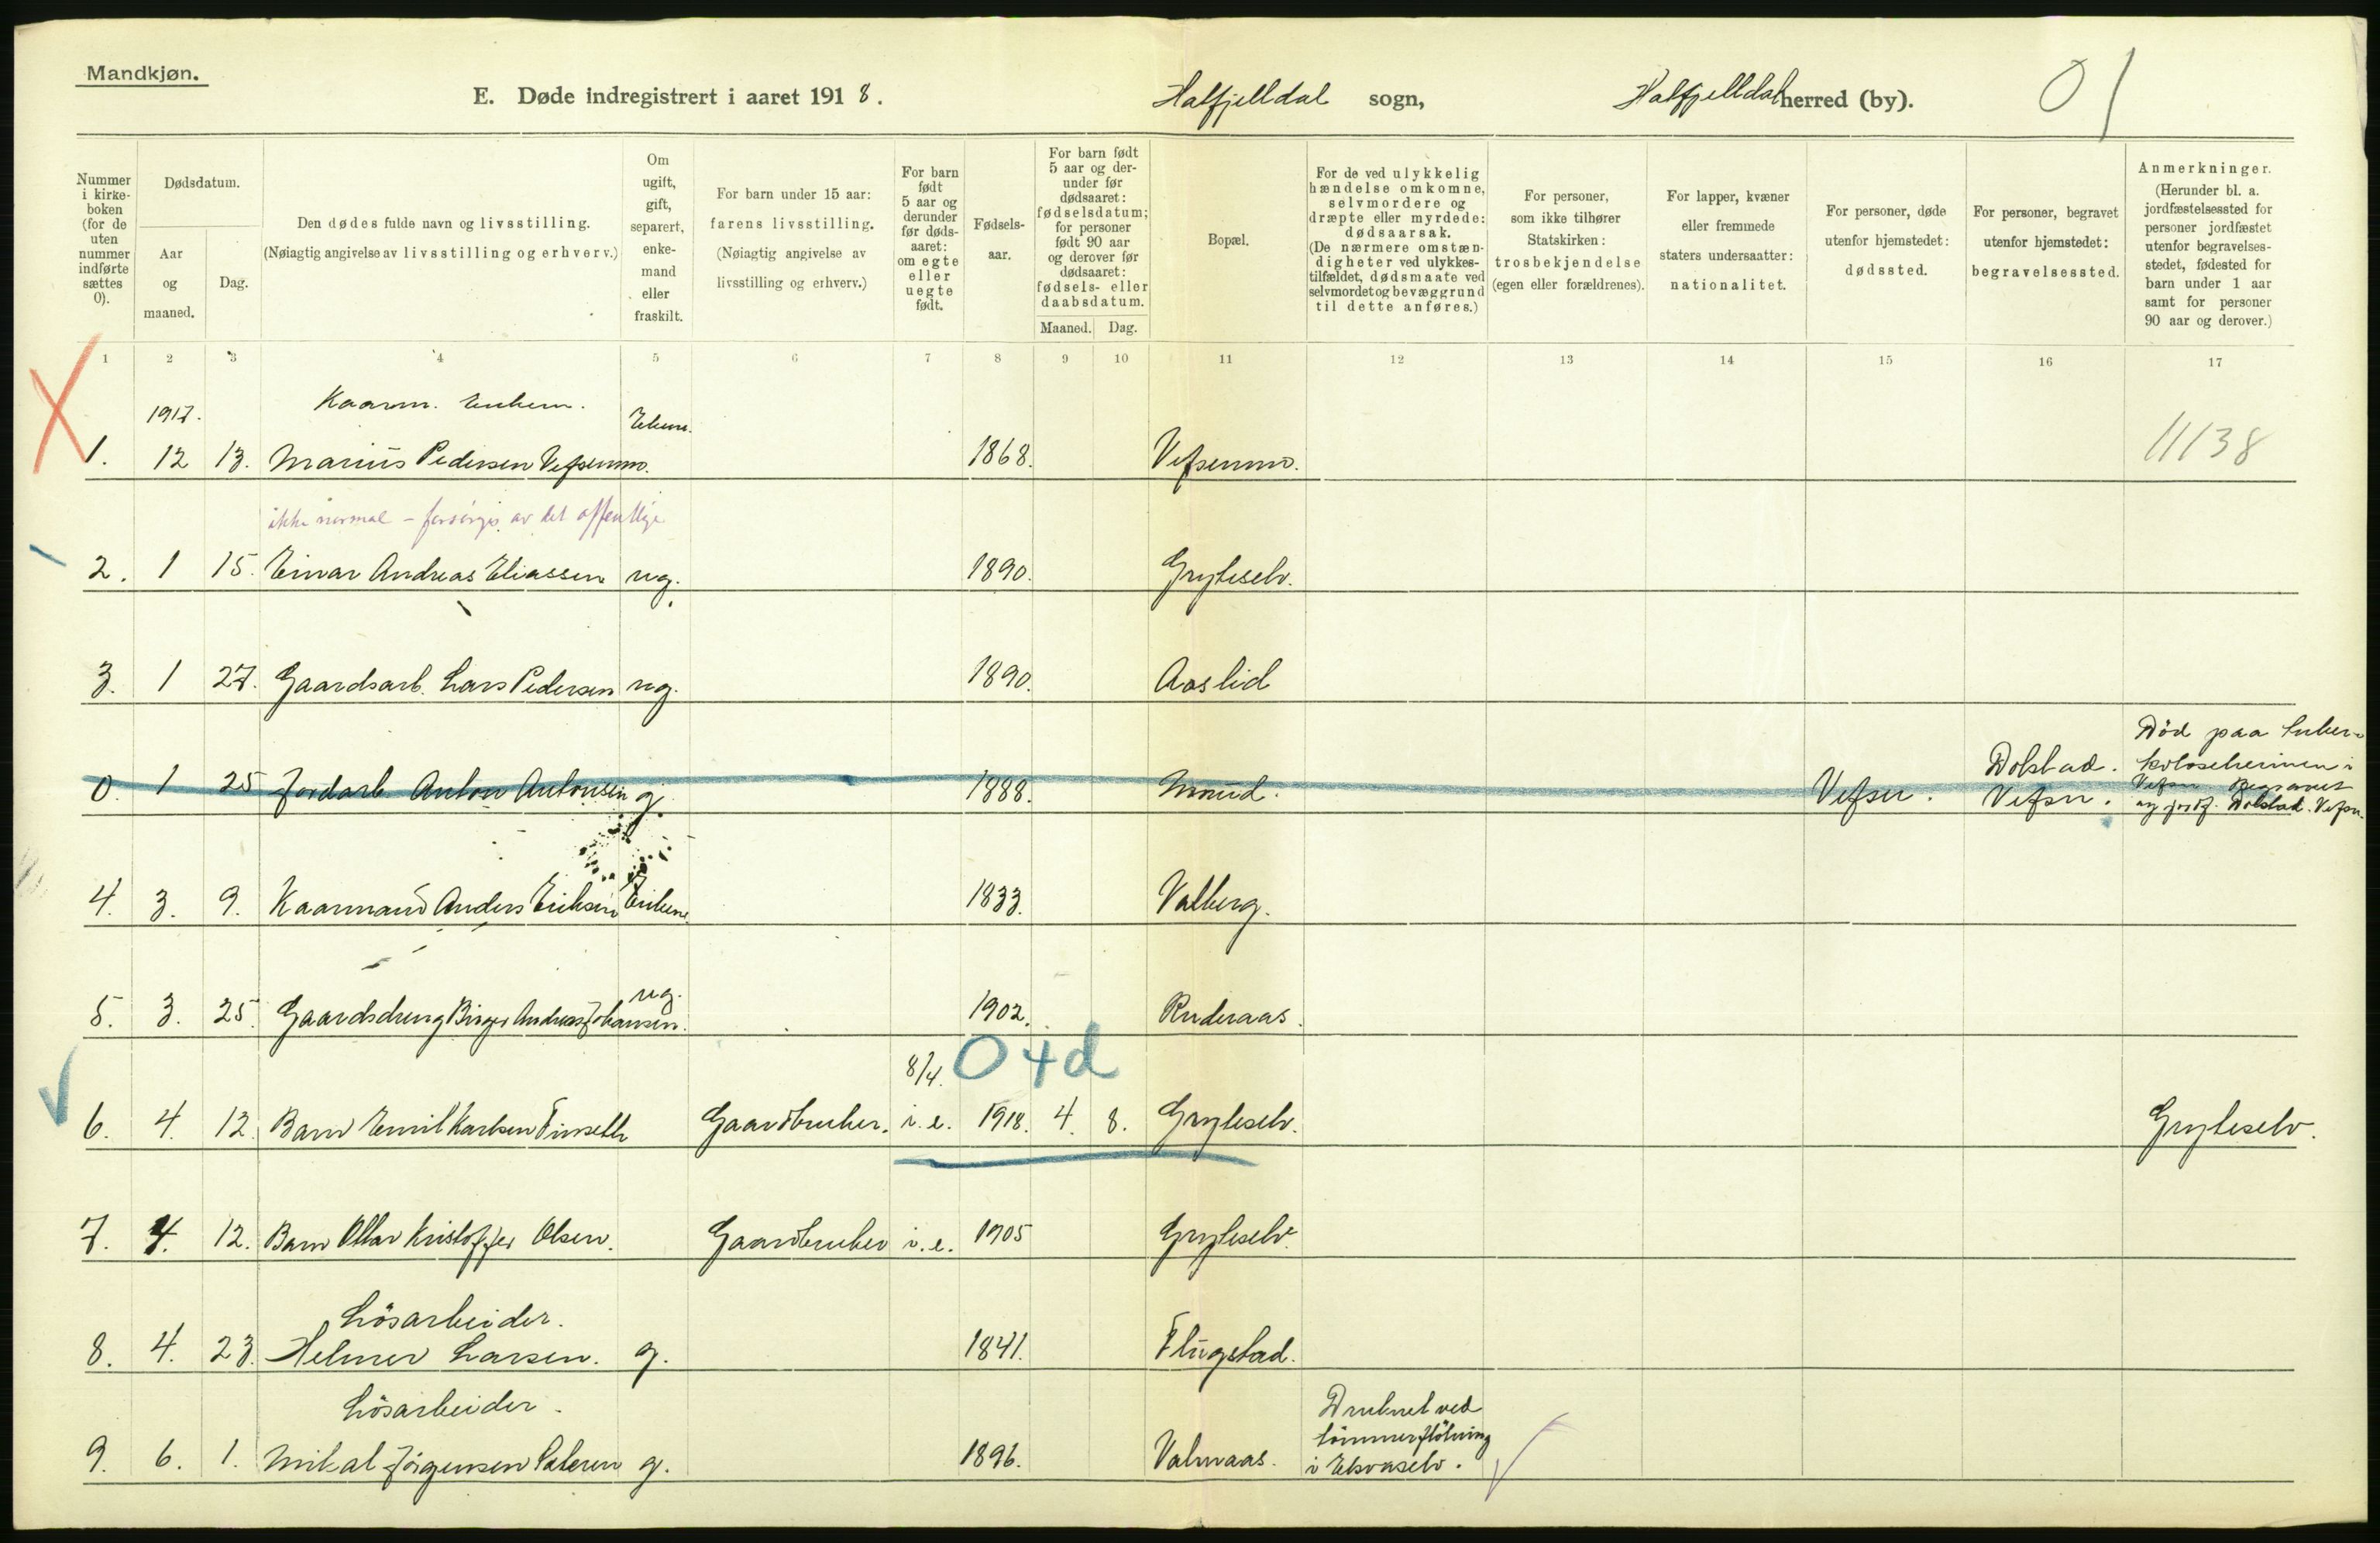 Mandkjøn.
E. Døde indregistrert i aaret 1918. Hatfjelldal sogn, Hatfjelldal herred (by). 01
Nummer i kirke-boken (for de uten nummer indførte sættes 0).
Dødsdatum.
Aar og maaned.
Dag.
Den dødes fulde navn og livsstilling.
(Nøiagtig angivelse av livsstilling og erhverv.)
Om ugift, gift, separert, enke-mand eller fraskilt.
For barn under 15 aar: farens livsstilling.
(Nøiagtig angivelse av livsstilling og erhverv.)
For barn født 5 aar og derunder før døds-aaret: om egte eller uegte født.
Fødsels-aar.
For barn født 5 aar og der-under før dødsaaret: fødselsdatum; for personer født 90 aar og derover før dødsaaret: fødsels- eller daabsdatum.
Maaned. Dag.
Bopæl.
For de ved ulykkelig hændelse omkomne, selvmordere og dræpte eller myrdede: dødsaarsak.
(De nærmere omstæn-digheter ved ulykkes-tilfældet, dødsmaate ved selvmordet og bevæggrund til dette anføres.)
For personer, som ikke tilhører Statskirken: trosbekjendelse (egen eller forældrenes).
For lapper, kvæner eller fremmede staters undersaatter: nationalitet.
For personer, døde utenfor hjemstedet: dødssted.
For personer, begravet utenfor hjemstedet: begravelsessted.
Anmerkninger.
(Herunder bl. a. jordfæstelsessted for personer jordfæstet utenfor begravelses-stedet, fødested for barn under 1 aar samt for personer 90 aar og derover.)
1 2 3 4 5 6 7 8 9 10 11 12 13 14 15 16 17
1917. Kaarm.
1. 12 13. Marius Pedersen Vefsenmo. 1868. Vefsenmo. 11138
ikke normal - forsørges av det offentlige
2. 1 15. Einar Andreas Eliassen ug. 1890. Gryteselv.
3. 1 27. Gaardsarb. Lars Pedersen ug. 1890. Aaslid
Død paa tuber-
Dolstad. kulosehjemmet i
0. 1 25 Jordarb. Anton Antonsen g. 1888. Vefsn. Vefsn. Vefsn Begravet
og jordf. Dolstad. Vefsn.
4. 3. 9. Kaarmand Anders Eriksen Enkem. 1833. Valberg.
5. 3. 25. Gaardsdreng Birger Andreas Johansen. ug. 1902. Ruderaas.
8/4. 0 4d
6. 4. 12. Barn Emil Karlsen Finseth Gaardbruker. i.e. 1918. 4. 8. Gryteselv. Gryteselv.
7. 4. 12. Barn Ottar Kristoffer Olsen. Gaardbruker i.e. 1905 Gryteselv.
Lösarbeider.
8. 4. 23. Helmer Larsen. g. 1841. Flugstad.
Lösarbeider.
9. 6. 1. Mikal Jörgensen g. 1896. Valmaas. Druknet ved
tömmerflötning
i Elsvaselv.